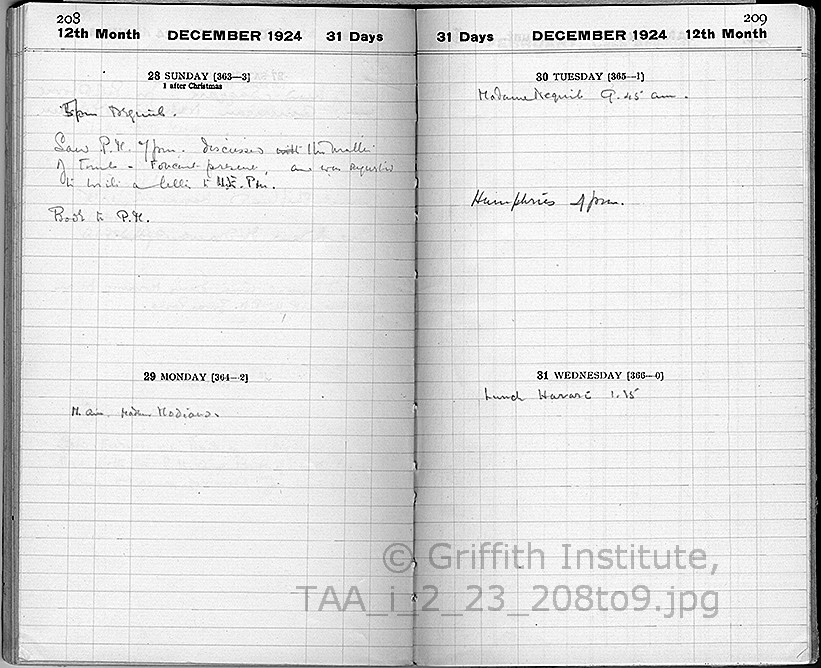 208
12th Month DECEMBER 1924 31 Days
28 SUNDAY [363—3]
1 after Christmas
5pm Neguib.
Saw P.M. 7pm. discussed with the matter
of Tomb - Foucart present, and was requested
to write a letter to H.E. P.M.
Book to P.M.
29 MONDAY [364—2]
11. am. Madame
209
31 Days DECEMBER 1924 12th Month
30 TUESDAY [365—1]
Madame Neguib 9.45 am.
Humphries 7pm.
31 WEDNESDAY [366—0]
Lunch Harari 1.15
© Griffith Institute,
TAA_i_2_23_208to9.jpg